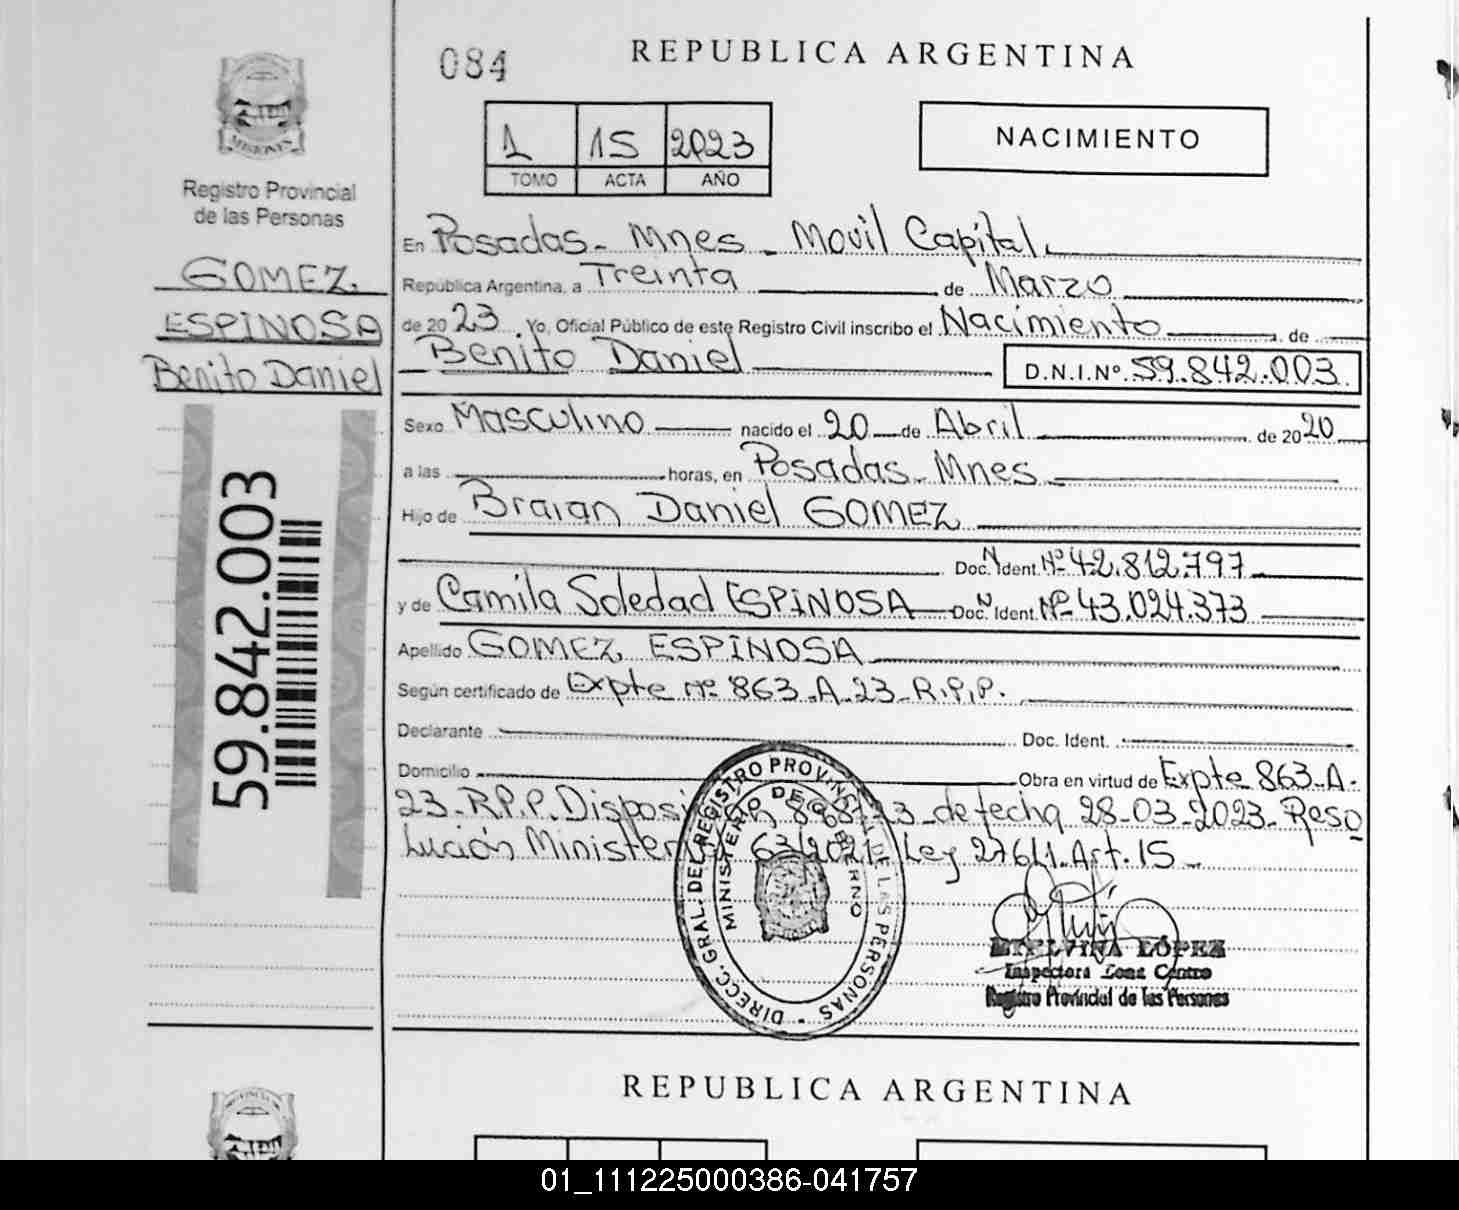 084
REPUBLICA ARGENTINA
1 15 2023
TOMO ACTA AÑO
NACIMIENTO
MISIONES
Registro Provincial
de las Personas
GOMEZ
ESPINOSA
Benito Daniel
59.842.003
En Posadas - Mnes - Movil Capital
República Argentina, a Treinta de Marzo
de 2023. Yo, Oficial Público de este Registro Civil inscribo el Nacimiento de
Benito Daniel D.N.I.Nº 59.842.003
Sexo Masculino nacido el 20 de Abril de 2020
a las horas, en Posadas - Mnes
Hijo de Braian Daniel GOMEZ
Doc. N Ident. Nº 42.812.797
y de Camila Soledad ESPINOSA Doc. N Ident. Nº 43.024.373
Apellido GOMEZ ESPINOSA
Según certificado de Expte nº 863-A-23-R.P.P.
Declarante Doc. Ident.
Domicilio Obra en virtud de Expte 863-A-
23-R.P.P. Disposición 898/23 de fecha 28-03-2023- Reso
lución Ministerial 63/2021 Ley 27611 Art. 15
DIRECC. GRAL. DEL REGISTRO PROVINCIAL DE LAS PERSONAS
MINISTERIO DE GOBIERNO
LÓPEZ
Inspectora Zona Centro
Registro Provincial de las Personas
REPUBLICA ARGENTINA
01_111225000386-041757